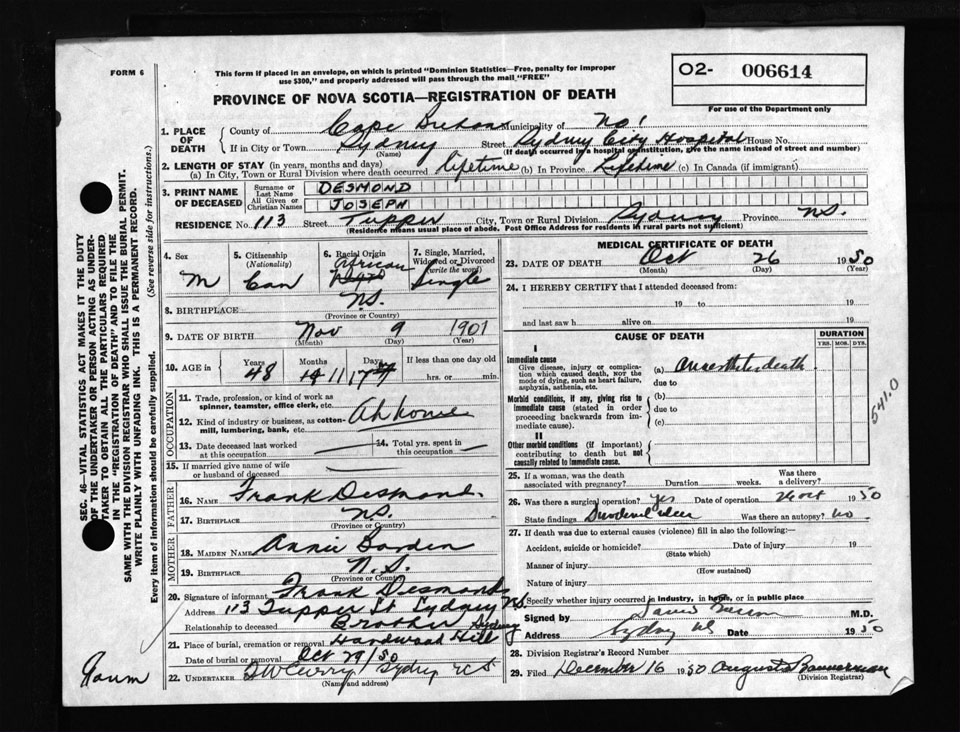 FORM 6
This form if placed in an envelope, on which is printed "Dominion Statistics—Free, penalty for improper
use $300," and properly addressed will pass through the mail "FREE"
O2- 006614
For use of the Department only
PROVINCE OF NOVA SCOTIA—REGISTRATION OF DEATH
1. PLACE OF DEATH
County of Cape Breton Municipality of No!
If in City or Town Sydney Street Sydney City Hospital House No.
(Name) (If death occurred in a hospital or institution, give the name instead of street and number)
2. LENGTH OF STAY (in years, months and days)
(a) In City, Town or Rural Division where death occurred lifetime (b) In Province Lifetime (c) In Canada (if immigrant)
3. PRINT NAME OF DECEASED
Surname or Last Name DESMOND
All Given or Christian Names JOSEPH
RESIDENCE No. 113 Street Tupper City, Town or Rural Division Sydney Province N.S.
(Residence means usual place of abode. Post Office Address for residents in rural parts not sufficient)
4. Sex M
5. Citizenship (Nationality) Can
6. Racial Origin African
7. Single, Married, Widowed or Divorced (write the word) Single
8. BIRTHPLACE N.S.
(Province or Country)
9. DATE OF BIRTH Nov 9 1901
(Month) (Day) (Year)
10. AGE in Years 48 Months 11 Days 17 If less than one day old
hrs. or min.
OCCUPATION
11. Trade, profession, or kind of work as
spinner, teamster, office clerk, etc.
12. Kind of industry or business, as cotton-
mill, lumbering, bank, etc. At home
13. Date deceased last worked
at this occupation
14. Total yrs. spent in
this occupation
15. If married give name of wife
or husband of deceased
FATHER
16. NAME Frank Desmond.
17. BIRTHPLACE N.S.
(Province or Country)
MOTHER
18. MAIDEN NAME Annie Borden
19. BIRTHPLACE N.S.
(Province or Country)
20. Signature of informant Frank Desmond
Address 113 Tupper St Sydney NS
Relationship to deceased Brother
21. Place of burial, cremation or removal Hardwood Hill Sydney
Date of burial or removal Oct 29/50
22. UNDERTAKER Curry Sydney
(Name and address)
MEDICAL CERTIFICATE OF DEATH
23. DATE OF DEATH Oct 26 1950
(Month) (Day) (Year)
24. I HEREBY CERTIFY that I attended deceased from:
19 to 19
and last saw h alive on 19
CAUSE OF DEATH
DURATION
YRS. MOS. DYS.
I
Immediate cause
Give disease, injury or complica-
tion which caused death, not the
mode of dying, such as heart failure,
asphyxia, asthenia, etc.
(a) Anaesthetic death
due to
Morbid conditions, if any, giving rise to
immediate cause (stated in order
proceeding backwards from im-
mediate cause).
(b)
due to
(c)
II
Other morbid conditions (if important)
contributing to death but not
causally related to immediate cause.
541.0
25. If a woman, was the death
associated with pregnancy? Duration weeks. Was there
a delivery?
26. Was there a surgical operation? yes Date of operation 26 Oct 1950
State findings Duodenal ulcer Was there an autopsy? no
27. If death was due to external causes (violence) fill in also the following:—
Accident, suicide or homicide? Date of injury 19
(State which)
Manner of injury
(How sustained)
Nature of injury
Specify whether injury occurred in industry, in home, or in public place
Signed by M.D.
Address Sydney NS Date 1950
28. Division Registrar's Record Number
29. Filed December 16 1950 Augusta Bannerman
(Division Registrar)
SEC. 46—VITAL STATISTICS ACT MAKES IT THE DUTY
OF THE UNDERTAKER OR PERSON ACTING AS UNDER-
TAKER TO OBTAIN ALL THE PARTICULARS REQUIRED
IN THE "REGISTRATION OF DEATH" AND TO FILE THE
SAME WITH THE DIVISION REGISTRAR WHO SHALL ISSUE THE BURIAL PERMIT.
WRITE PLAINLY WITH UNFADING INK. THIS IS A PERMANENT RECORD.
Every item of information should be carefully supplied. (See reverse side for instructions.)